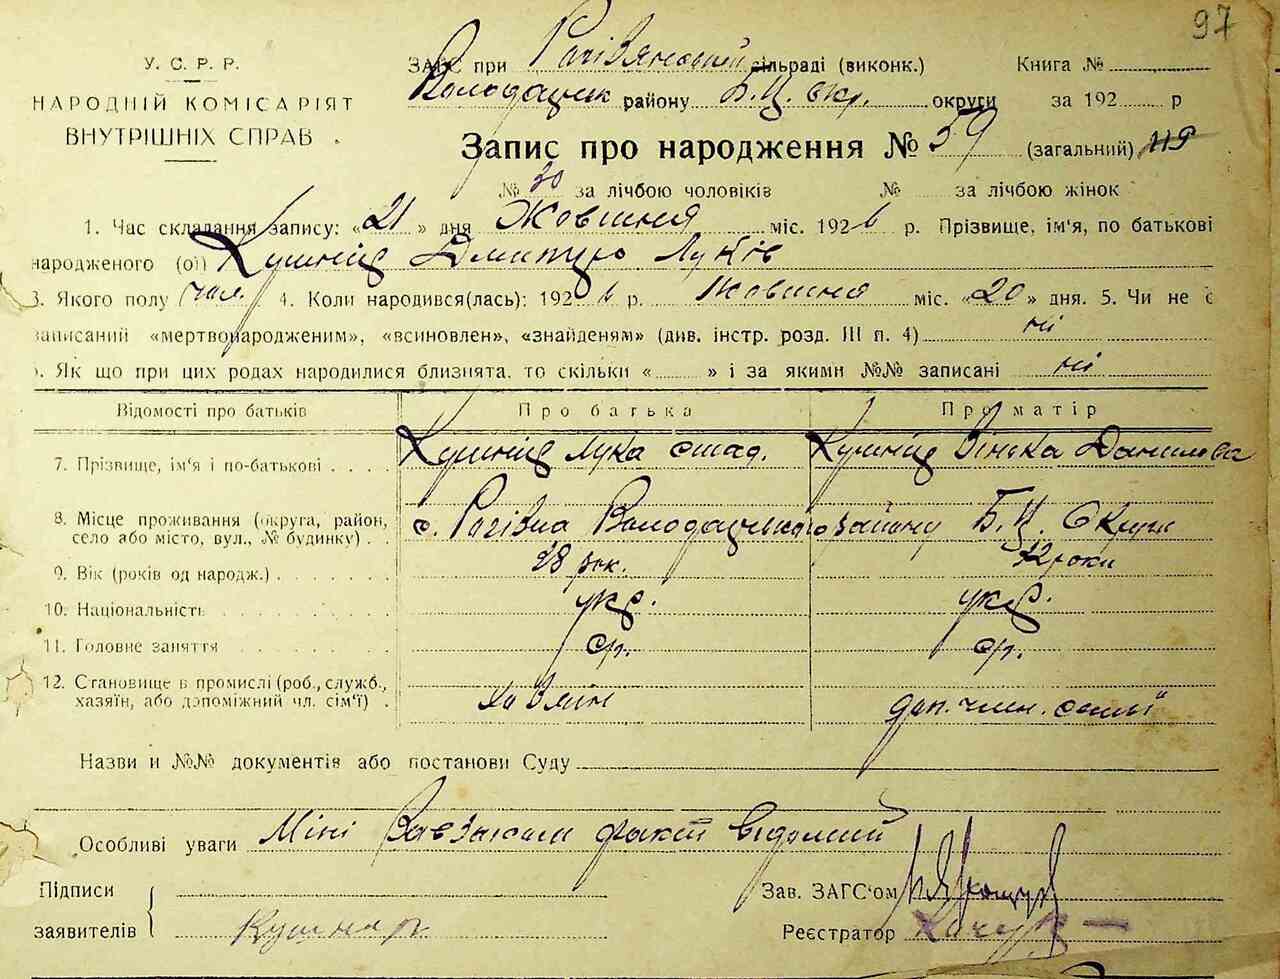 97
У. С. Р. Р.
НАРОДНІЙ КОМІСАРІЯТ
ВНУТРІШНІХ СПРАВ
ЗАГС при сільраді (виконк.) Книга №
району Б.Ц. окр. округи за 192 р
Запис про народження № 59 (загальний)
№ 30 за лічбою чоловіків № за лічбою жінок
1. Час складання запису: « 21 » дня Жовтня міс. 1926 р. Прізвище, ім'я, по батькові
народженого (ої) Кушнір Дмитро Луків
3. Якого полу чол. 4. Коли народився(лась): 1926 р. Жовтня міс. « 20 » дня. 5. Чи не є
записаний «мертвонародженим», «всиновлен», «знайденям» (див. інстр. розд. III п. 4) ні
Як що при цих родах народилися близнята, то скільки « » і за якими №№ записані ні
Відомості про батьків Про батька Про матір
7. Прізвище, ім'я і по-батькові Кушнір Лука Кушнір Данилова
8. Місце проживання (округа, район, село або місто, вул., № будинку) с. району Б.Ц. Округи
9. Вік (років од народж.) 28 рок. роки
10. Національність укр. укр.
11. Головне заняття ср. ср.
12. Становище в промислі (роб., служб., хазяїн, або допоміжний чл. сім'ї) хазяїн доп. член. семї
Назви и №№ документів або постанови Суду
Особливі уваги Мені факт відомий
Підписи
заявителів Кушнір
Зав. ЗАГС'ом
Реєстратор